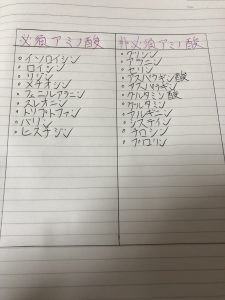 必須アミノ酸
・イソロイシン
・ロイシン
・リジン
・メチオシン
・フェニルアラニン
・スレオニン
・トリプトファン
・バリン
・ヒスチジン
非必須アミノ酸
・グリシン
・アラニン
・セリン
・アスパラギン酸
・アスパラギン
・グルタミン酸
・グルタミン
・アルギニン
・システイン
・チロシン
・プロリン